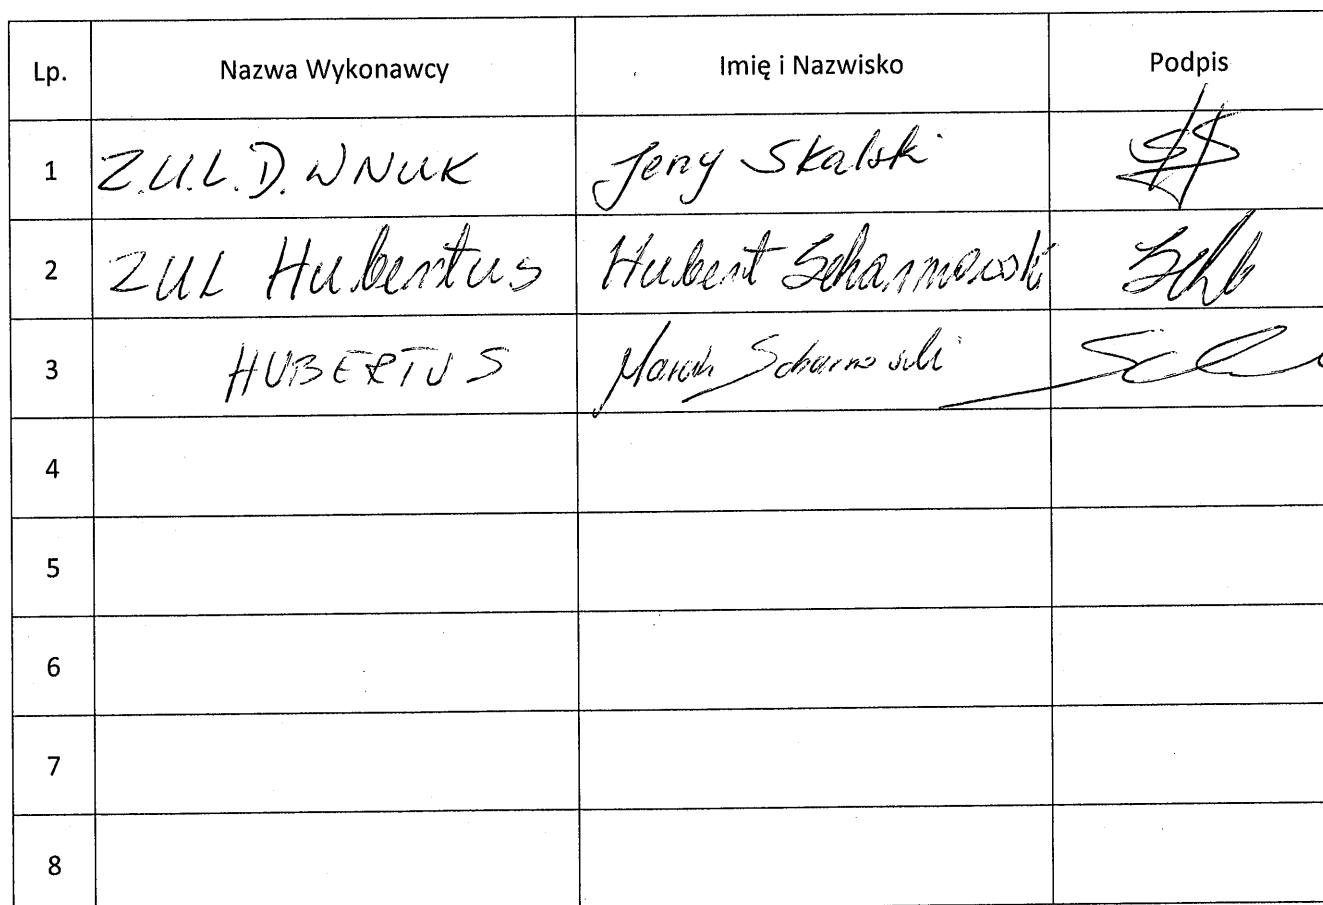 Lp. Nazwa Wykonawcy Imię i Nazwisko Podpis
1 Z.U.L. D. WNUK Jerzy Skalski
2 ZUL Hubertus Hubert Scharmowski
3 HUBERTUS Scharnowski
4
5
6
7
8